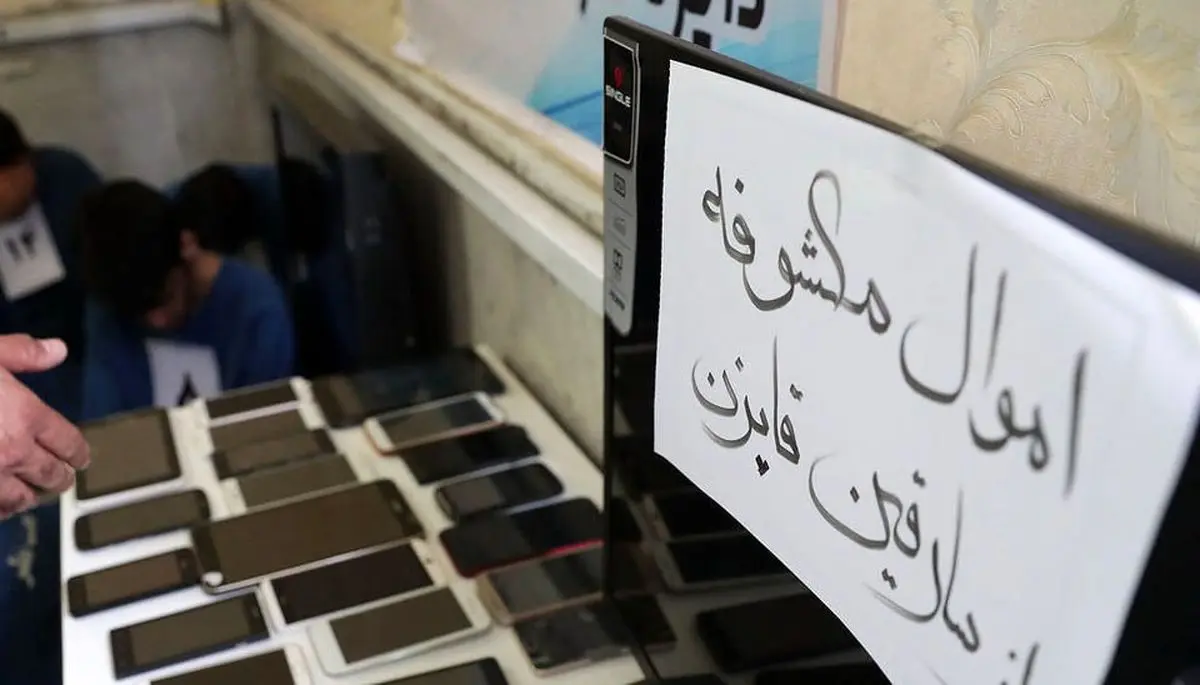 SINGLE
اموال مکشوفه
از سارقین قاپزن
۱۲
۸